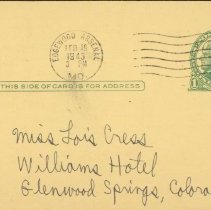 EDGEWOOD ARSENAL
FEB 18
1943
PM
MD.
THIS SIDE OF CARD IS FOR ADDRESS
Miss Lois Cress
Williams Hotel
Glenwood Springs, Colora